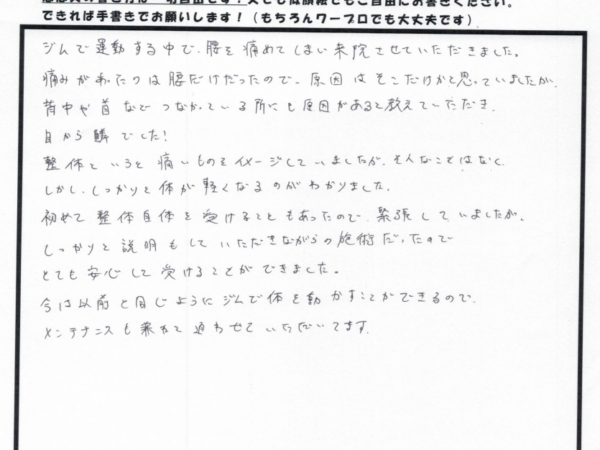 できれば手書きでお願いします！（もちろんワープロでも大丈夫です）
ジムで運動する中で、腰を痛めてしまい来院させていただきました。
痛みがあったのは腰だけだったので、原因はそこだけかと思っていましたが、
背中や首などつながっている所にも原因があると教えていただき
目から鱗でした！
整体というと痛いものをイメージしていましたが、そんなことはなく、
しかし、しっかりと体が軽くなるのがわかりました。
初めて整体自体を受けることもあったので、緊張していましたが、
しっかりと説明もしていただきながらの施術だったので
とても安心して受けることができました。
今は以前と同じようにジムで体を動かすことができるので、
メンテナンスも兼ねて通わせていただいてます。